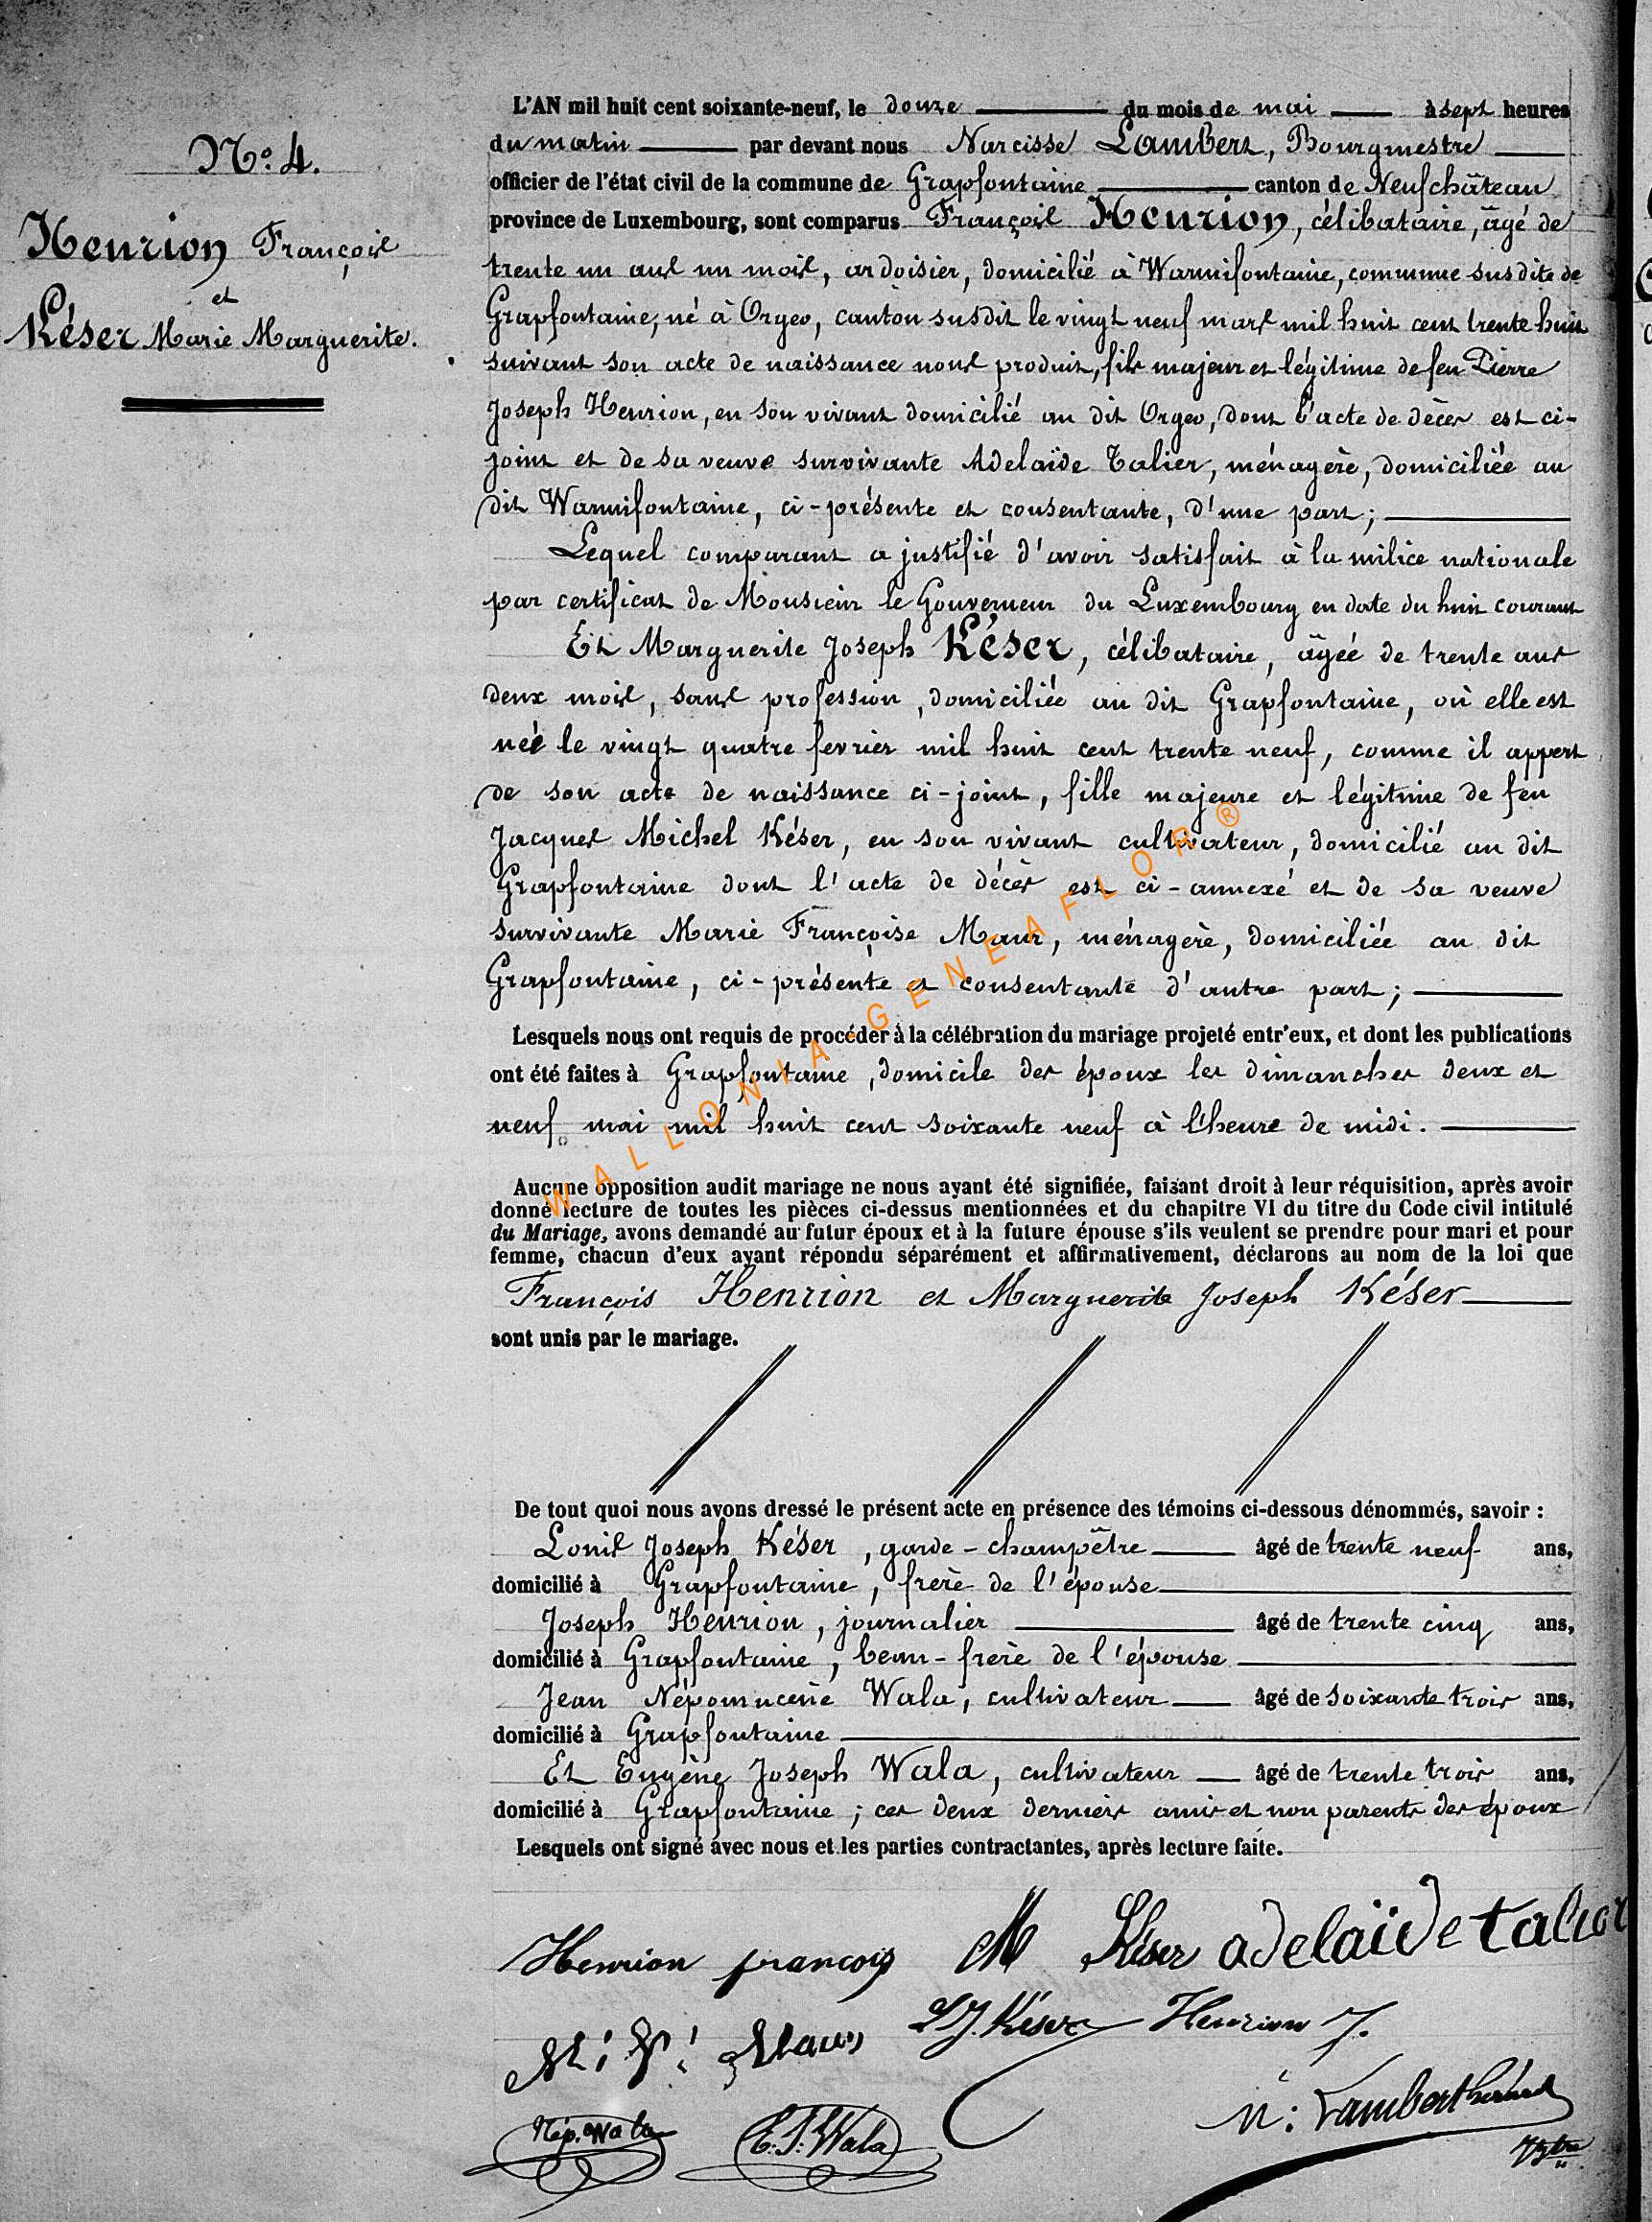 N.º 4.
Henrion François
et
Késer Marie Marguerite.
L'AN mil huit cent soixante-neuf, le douze du mois de mai à sept heures
du matin par devant nous Narcisse Lambert, Bourgmestre
officier de l'état civil de la commune de Grapfontaine canton de Neufchâteau
province de Luxembourg, sont comparus François Henrion, célibataire, âgé de
trente un ans un mois, ardoisier, domicilié à Warmifontaine, commune susdite de
Grapfontaine, né à Orgeo, canton susdit le vingt neuf mars mil huit cent trente huit
suivant son acte de naissance nous produit, fils majeur et légitime de feu Pierre
Joseph Henrion, en son vivant domicilié au dit Orgeo, dont l'acte de décès est ci-
joint et de sa veuve survivante Adelaïde Talier, ménagère, domiciliée au
dit Warmifontaine, ci-présente et consentante, d'une part;
Lequel comparant a justifié d'avoir satisfait à la milice nationale
par certificat de Monsieur le Gouverneur du Luxembourg en date du huit courant
Et Marguerite Joseph Késer, célibataire, âgée de trente ans
deux mois, sans profession, domiciliée au dit Grapfontaine, où elle est
née le vingt quatre fevrier mil huit cent trente neuf, comme il appert
de son acte de naissance ci-joint, fille majeure et légitime de feu
Jacques Michel Késer, en son vivant cultivateur, domicilié au dit
Grapfontaine dont l'acte de décès est ci-annexé et de sa veuve
survivante Marie Françoise Maur, ménagère, domiciliée au dit
Grapfontaine, ci-présente et consentante d'autre part;
Lesquels nous ont requis de procéder à la célébration du mariage projeté entr'eux, et dont les publications
ont été faites à Grapfontaine, domicile des époux les dimanches deux et
neuf mai mil huit cent soixante neuf à l'heure de midi.
Aucune opposition audit mariage ne nous ayant été signifiée, faisant droit à leur réquisition, après avoir
donné lecture de toutes les pièces ci-dessus mentionnées et du chapitre VI du titre du Code civil intitulé
du Mariage, avons demandé au futur époux et à la future épouse s'ils veulent se prendre pour mari et pour
femme, chacun d'eux ayant répondu séparément et affirmativement, déclarons au nom de la loi que
François Henrion et Marguerite Joseph Késer
sont unis par le mariage.
De tout quoi nous avons dressé le présent acte en présence des témoins ci-dessous dénommés, savoir :
Louis Joseph Késer, garde-champêtre âgé de trente neuf ans,
domicilié à Grapfontaine, frère de l'épouse
Joseph Henrion, journalier âgé de trente cinq ans,
domicilié à Grapfontaine, beau-frère de l'épouse
Jean Népomucène Wala, cultivateur âgé de soixante trois ans,
domicilié à Grapfontaine
Et Eugène Joseph Wala, cultivateur âgé de trente trois ans,
domicilié à Grapfontaine; ces deux derniers amis et non parents des époux
Lesquels ont signé avec nous et les parties contractantes, après lecture faite.
Henrion françois M Késer adelaïde talier
L J. Késer Henrion J.
Nép. Wala E. J. Wala N: Lambert
WALLONIA-GENEAFLOR®